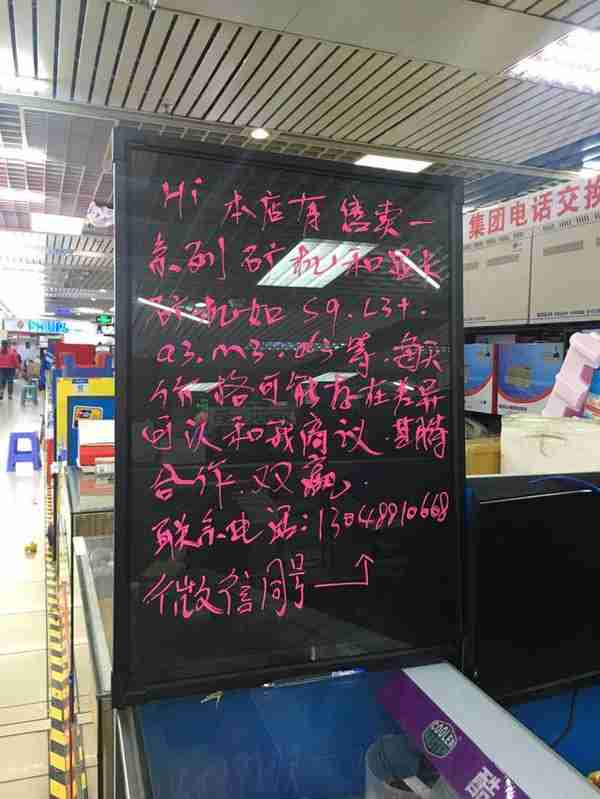 Hi 本店有售卖一
系列矿机和显卡
矿机如 S9. L3+.
a3. m3. d3等. 每天
价格可能存在差异
可以和我商议. 其聘
合作. 双赢.
联系电话: 13048910668
微信同号
集团电话交换
PHILIPS
COOLER
酷